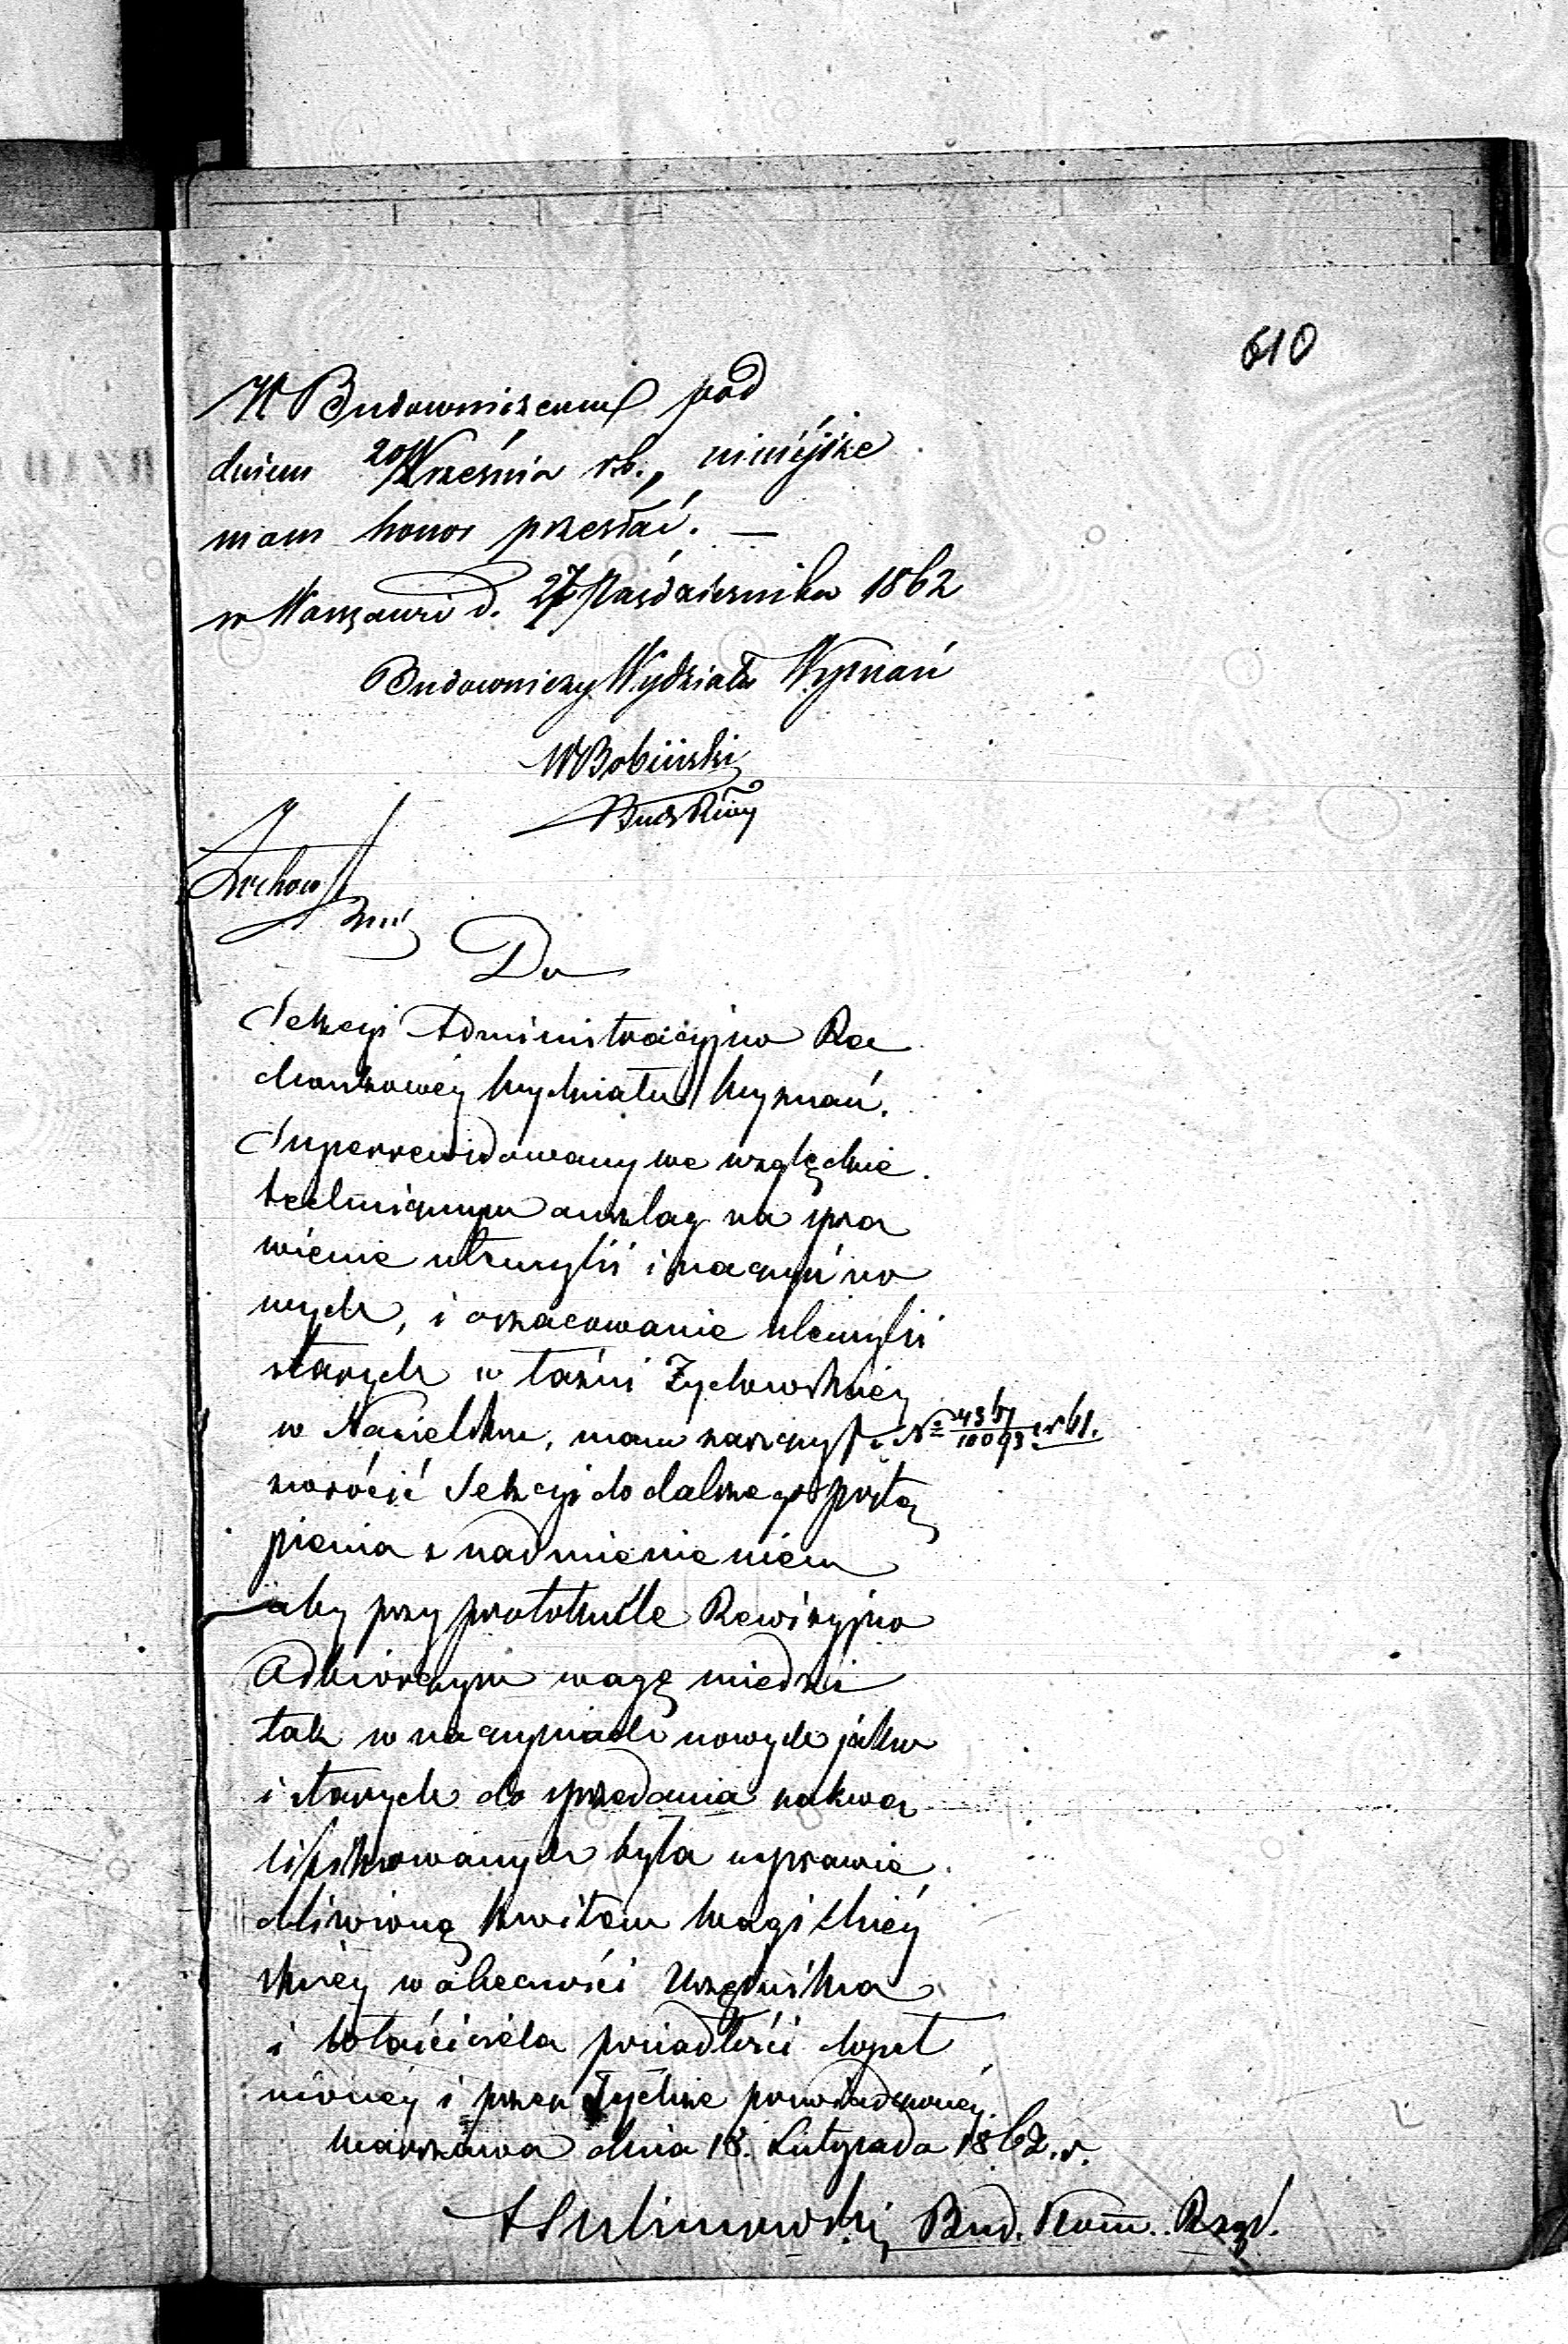 610
W Budowniczemu pod
dniem 20 Września rb., niniejsze
mam honor przesłać. —
w Warszawie d. 27 Października 1862
Budowniczy Wydziału Wyznań
W Bobiński
Do
Sekcyi Administracyjno Ra
chunkowéj Wydziału Wyznań.
Superrewidowany we względzie
technicznym anszlag na spra
wienie utensylii i naczyń no
wych, i oszacowanie utensylii
starych w łaźni Żydowskiéj
w Nasielsku, mam zaszczyt z N° 4361/10093 r 61.
zwrócić Sekcyi do dalszego postą
pienia z nadmienieniem
aby przy protokule Rewizyjno
Odbiorczym wagę miedzi
tak w naczyniach nowych jako
i starych do sprzedania zakwa
lifikowanych była usprawie
dliwioną kwitem Wagi Miéj
skiéj w obecności Urzędnika
i właściciela posiadłości dopeł
nionéj i przez tychże poświadczonéj.
Warszawa dnia 18. Listopada 1862. r.
ASulimowski Bud. Kom. Rząd.